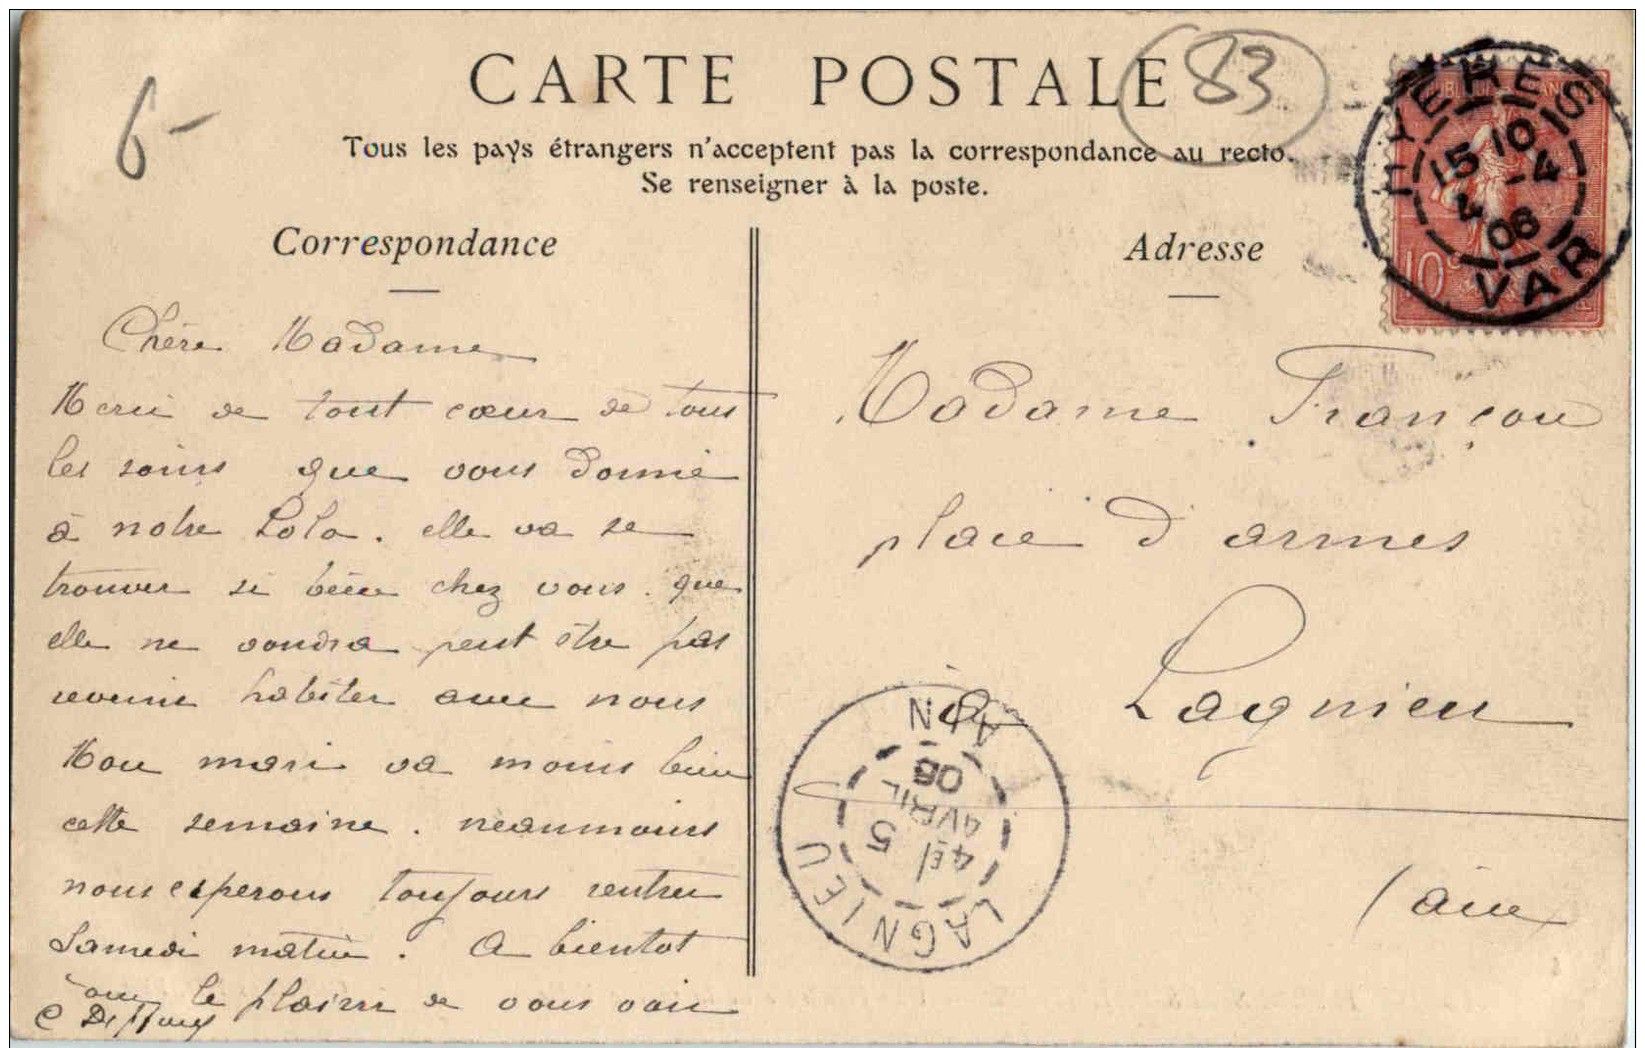 CARTE POSTALE
83
6-
Tous les pays étrangers n'acceptent pas la correspondance au recto.
Se renseigner à la poste.
Correspondance
Chère Madame
Merci de tout cœur de tous
les soins que vous donné
à notre Lola. elle va se
trouver si bien chez vous. que
elle ne voudra peut être pas
revenir habiter avec nous
Mon mari va moins bien
cette semaine. neanmoins
nous esperons toujours rentrer
Samedi matin. A bientot
le plaisir de vous voir
Adresse
Madame Françou
place d'armes
à Lagnieu
(ain
HYERES
15 10
-4
08
VAR
10c
LAGNIEU
AIN
4E/
5
AVRIL